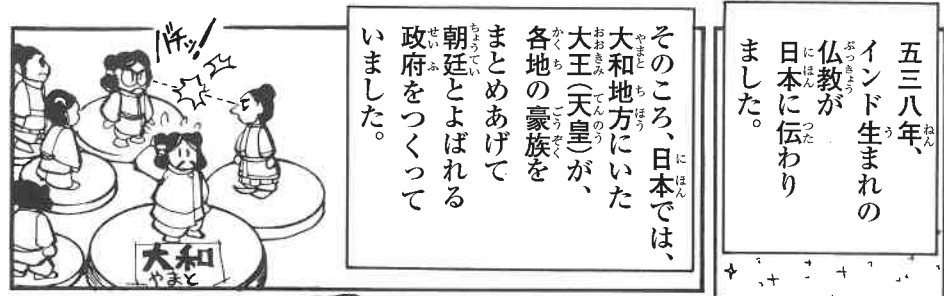 五三八年、
インド生まれの
仏教が
日本に伝わり
ました。
そのころ、日本では、
大和地方にいた
大王(天皇)が、
各地の豪族を
まとめあげて
朝廷とよばれる
政府をつくって
いました。
バチッ!
大和
やまと